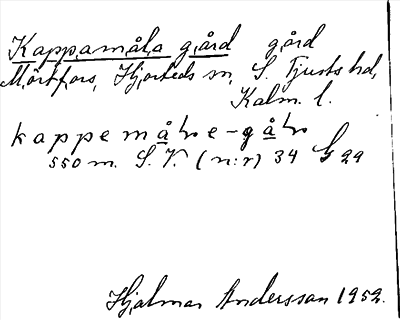 Kappamåla gård gård
Mörtfors, Hjorteds sn, S. Tjusts hd,
Kalm. l.
kappemåɭe-gåɭ
550 m. S.V. (n:r) 34 G 29
Hjalmar Andersson 1952.